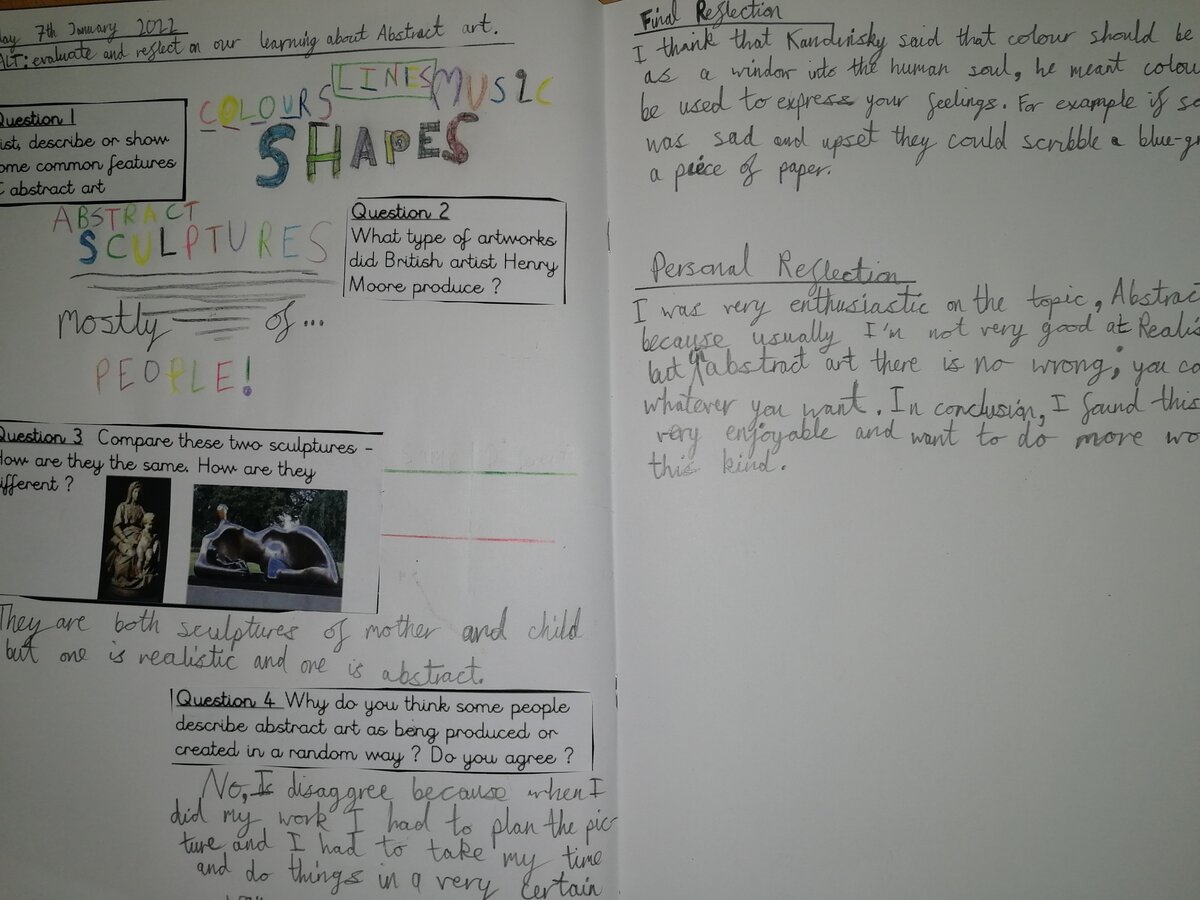 7th January 2022
ALT: evaluate and reflect on our learning about Abstract art.
Question 1
list, describe or show
some common features
of abstract art
COLOURS
LINES
MUSIC
SHAPES
ABSTRACT
SCULPTURES
mostly of...
PEOPLE!
Question 2
What type of artworks
did British artist Henry
Moore produce ?
Question 3 Compare these two sculptures -
How are they the same. How are they
different ?
They are both sculptures of mother and child
but one is realistic and one is abstract.
Question 4 Why do you think some people
describe abstract art as being produced or
created in a random way ? Do you agree ?
No, I disaggree because when I
did my work I had to plan the pic-
ture and I had to take my time
and do things in a very certain
Final Reflection
I thank that Kandinsky said that colour should be
as a window into the human soul, he meant colou
be used to express your feelings. For example if so
was sad and upset they could scribble a blue-gr
a piece of paper.
Personal Reflection
I was very enthusiastic on the topic, Abstract
because usually I'm not very good at Realis
but in abstract art there is no wrong; you co
whatever you want. In conclusion, I found this
very enjoyable and want to do more wo
this kind.